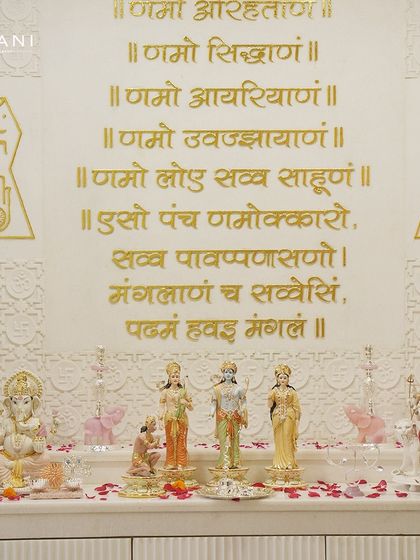 ANI
॥ णमो अरिहंताणं ॥
॥ णमो सिद्धाणं ॥
॥ णमो आयरियाणं ॥
॥ णमो उवज्झायाणं ॥
॥ णमो लोए सव्व साहूणं ॥
॥ एसो पंच णमोक्कारो,
सव्व पावप्पणासणो ।
मंगलाणं च सव्वेसिं,
पढमं हवइ मंगलं ॥